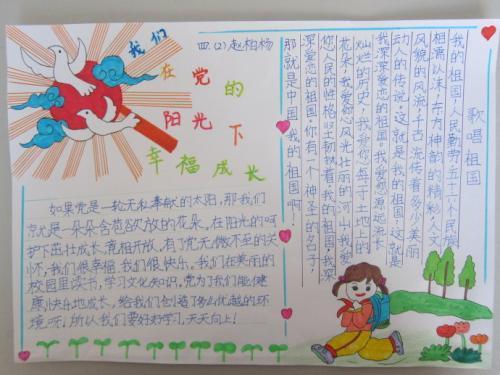 我们
在党的
阳光下
幸福成长
四.(2)赵柏杨
如果党是一轮无私奉献的太阳,那我们
就是一朵朵含苞欲放的花朵。在阳光的呵
护下茁壮成长,竞相开放。有了党无微不至的关
怀,我们很幸福,我们很快乐。我们在美丽的
校园里读书,学习文化知识。党为了我们能健
康快乐地成长,给我们创造了多么优越的环
境呀,所以我们要好好学习,天天向上!
歌唱祖国
我的祖国!人民勤劳,五十六个民族
相濡以沫,东方神韵的精彩,人文
风貌的风流,千古流传着多少美丽
动人的传说,这就是我的祖国,这就是
我深深爱恋的祖国。我爱您源远流长
灿烂的历史,我爱您每寸土地上的
花朵,我爱您风光壮丽的河山,我爱
您人民的性格坚韧执着,我的祖国,我深
深爱恋的祖国。你有一个神圣的名字,
那就是中国!我的祖国啊!